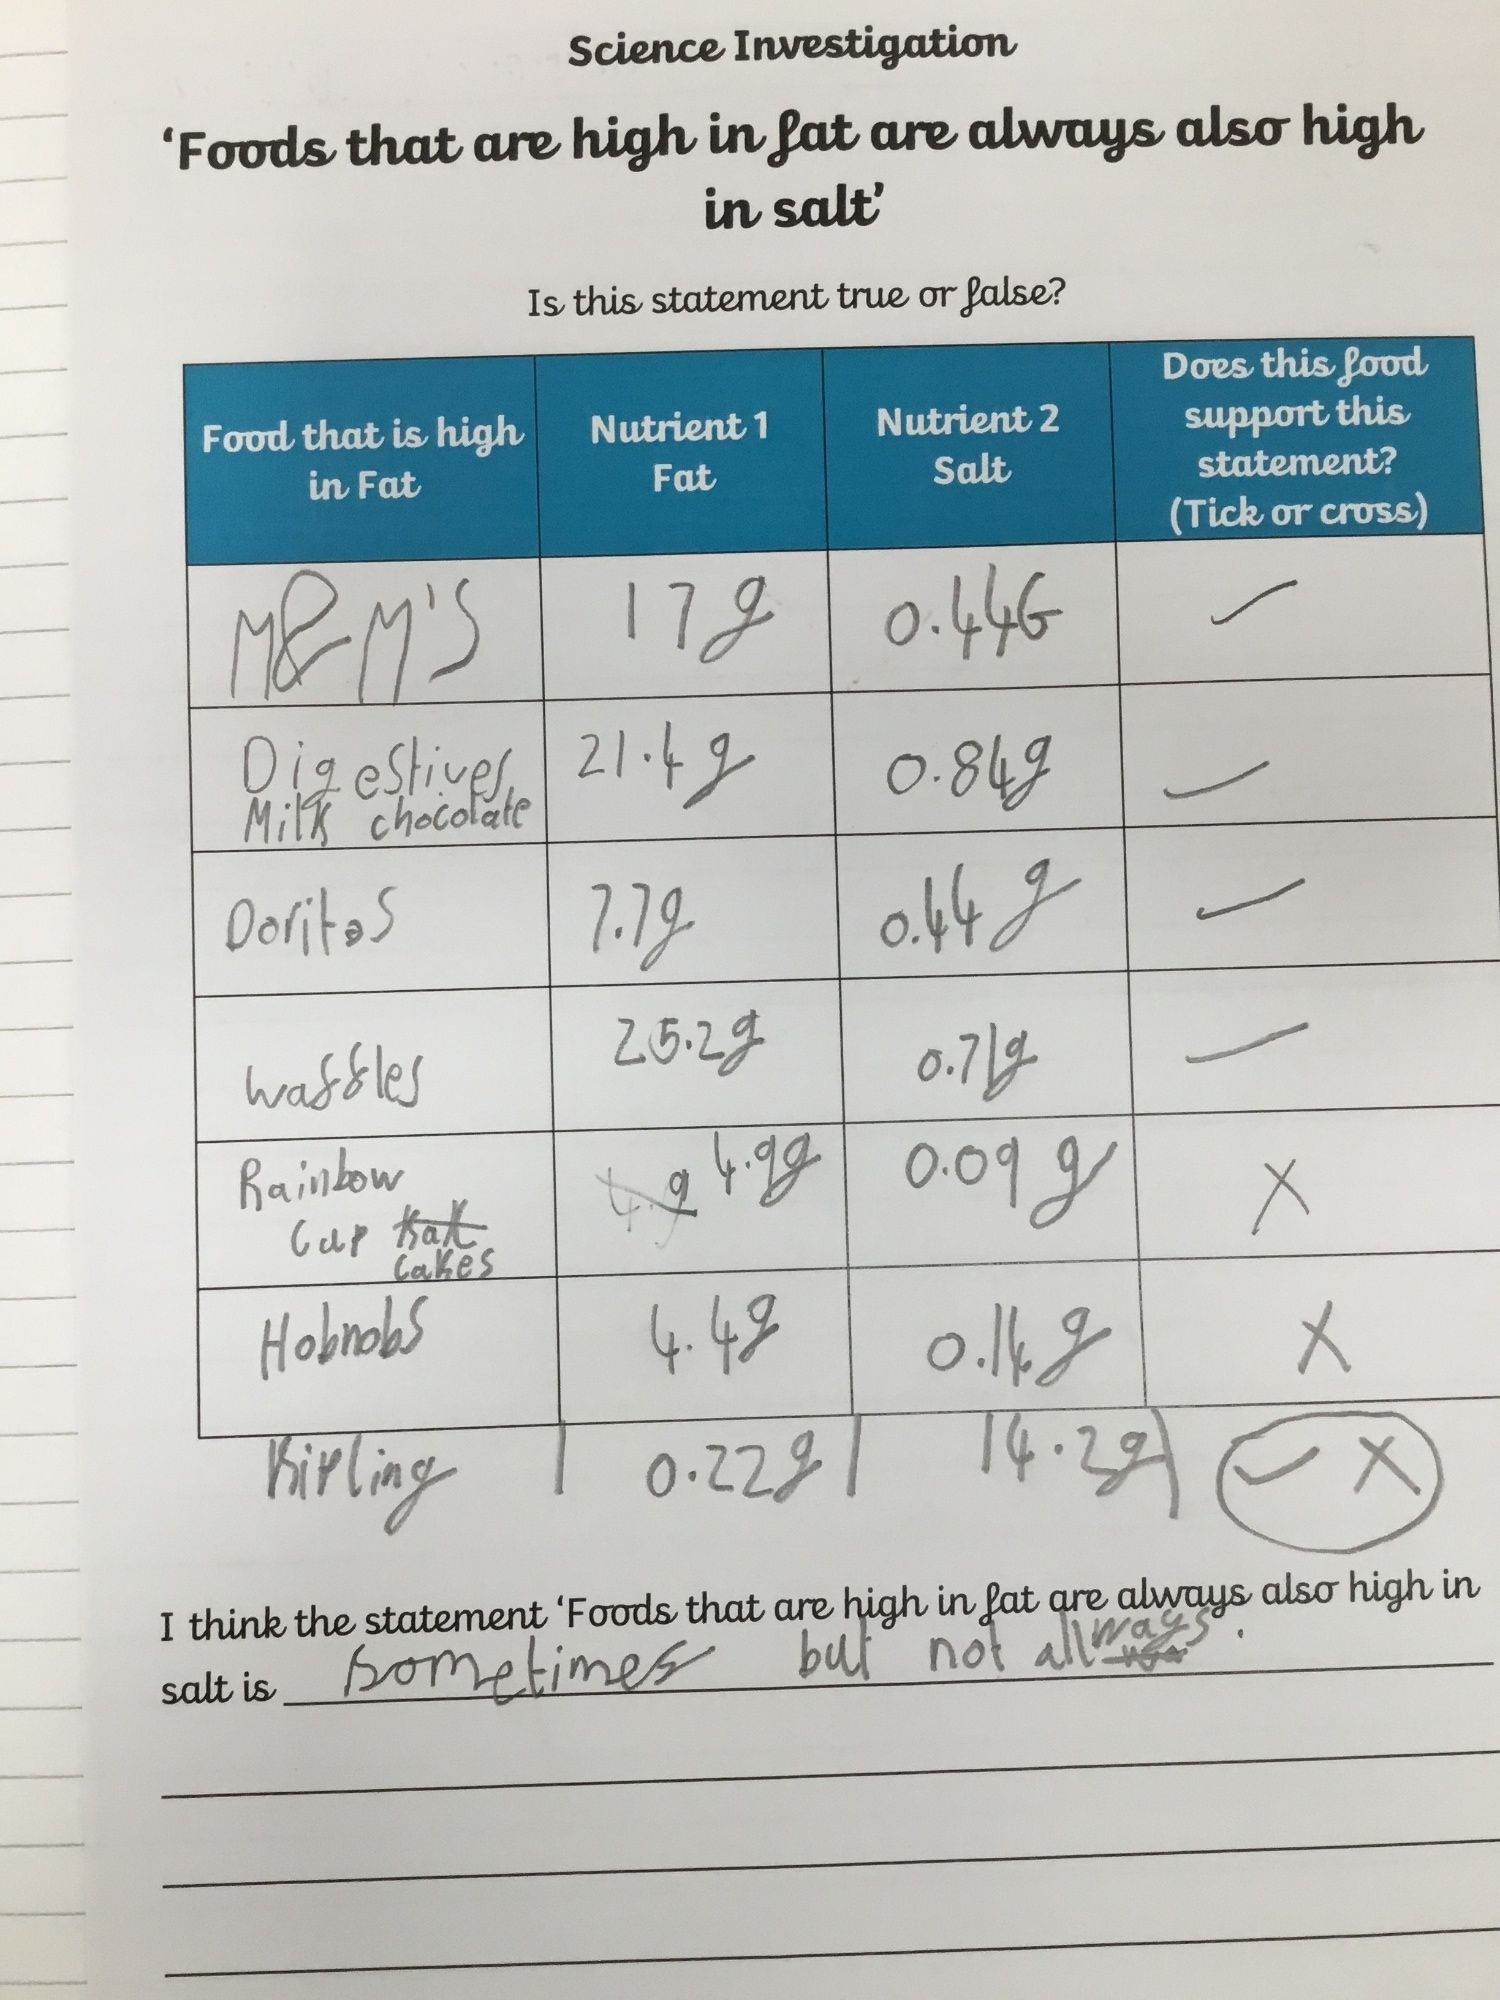 Science Investigation
‘Foods that are high in fat are always also high
in salt’
Is this statement true or false?
Food that is high
in Fat
Nutrient 1
Fat
Nutrient 2
Salt
Does this food
support this
statement?
(Tick or cross)
M&M'S 17g 0.44G ✓
Digestives 21.4g 0.84g ✓
Milk chocolate
Doritos 7.7g 0.44g ✓
waffles 25.2g 0.71g ✓
Rainbow 4.9g 0.09g X
Cup
cakes
Hobnobs 4.4g 0.14g X
Kipling 0.22g 14.2g ✓ X
I think the statement ‘Foods that are high in fat are always also high in
salt is sometimes but not allways.